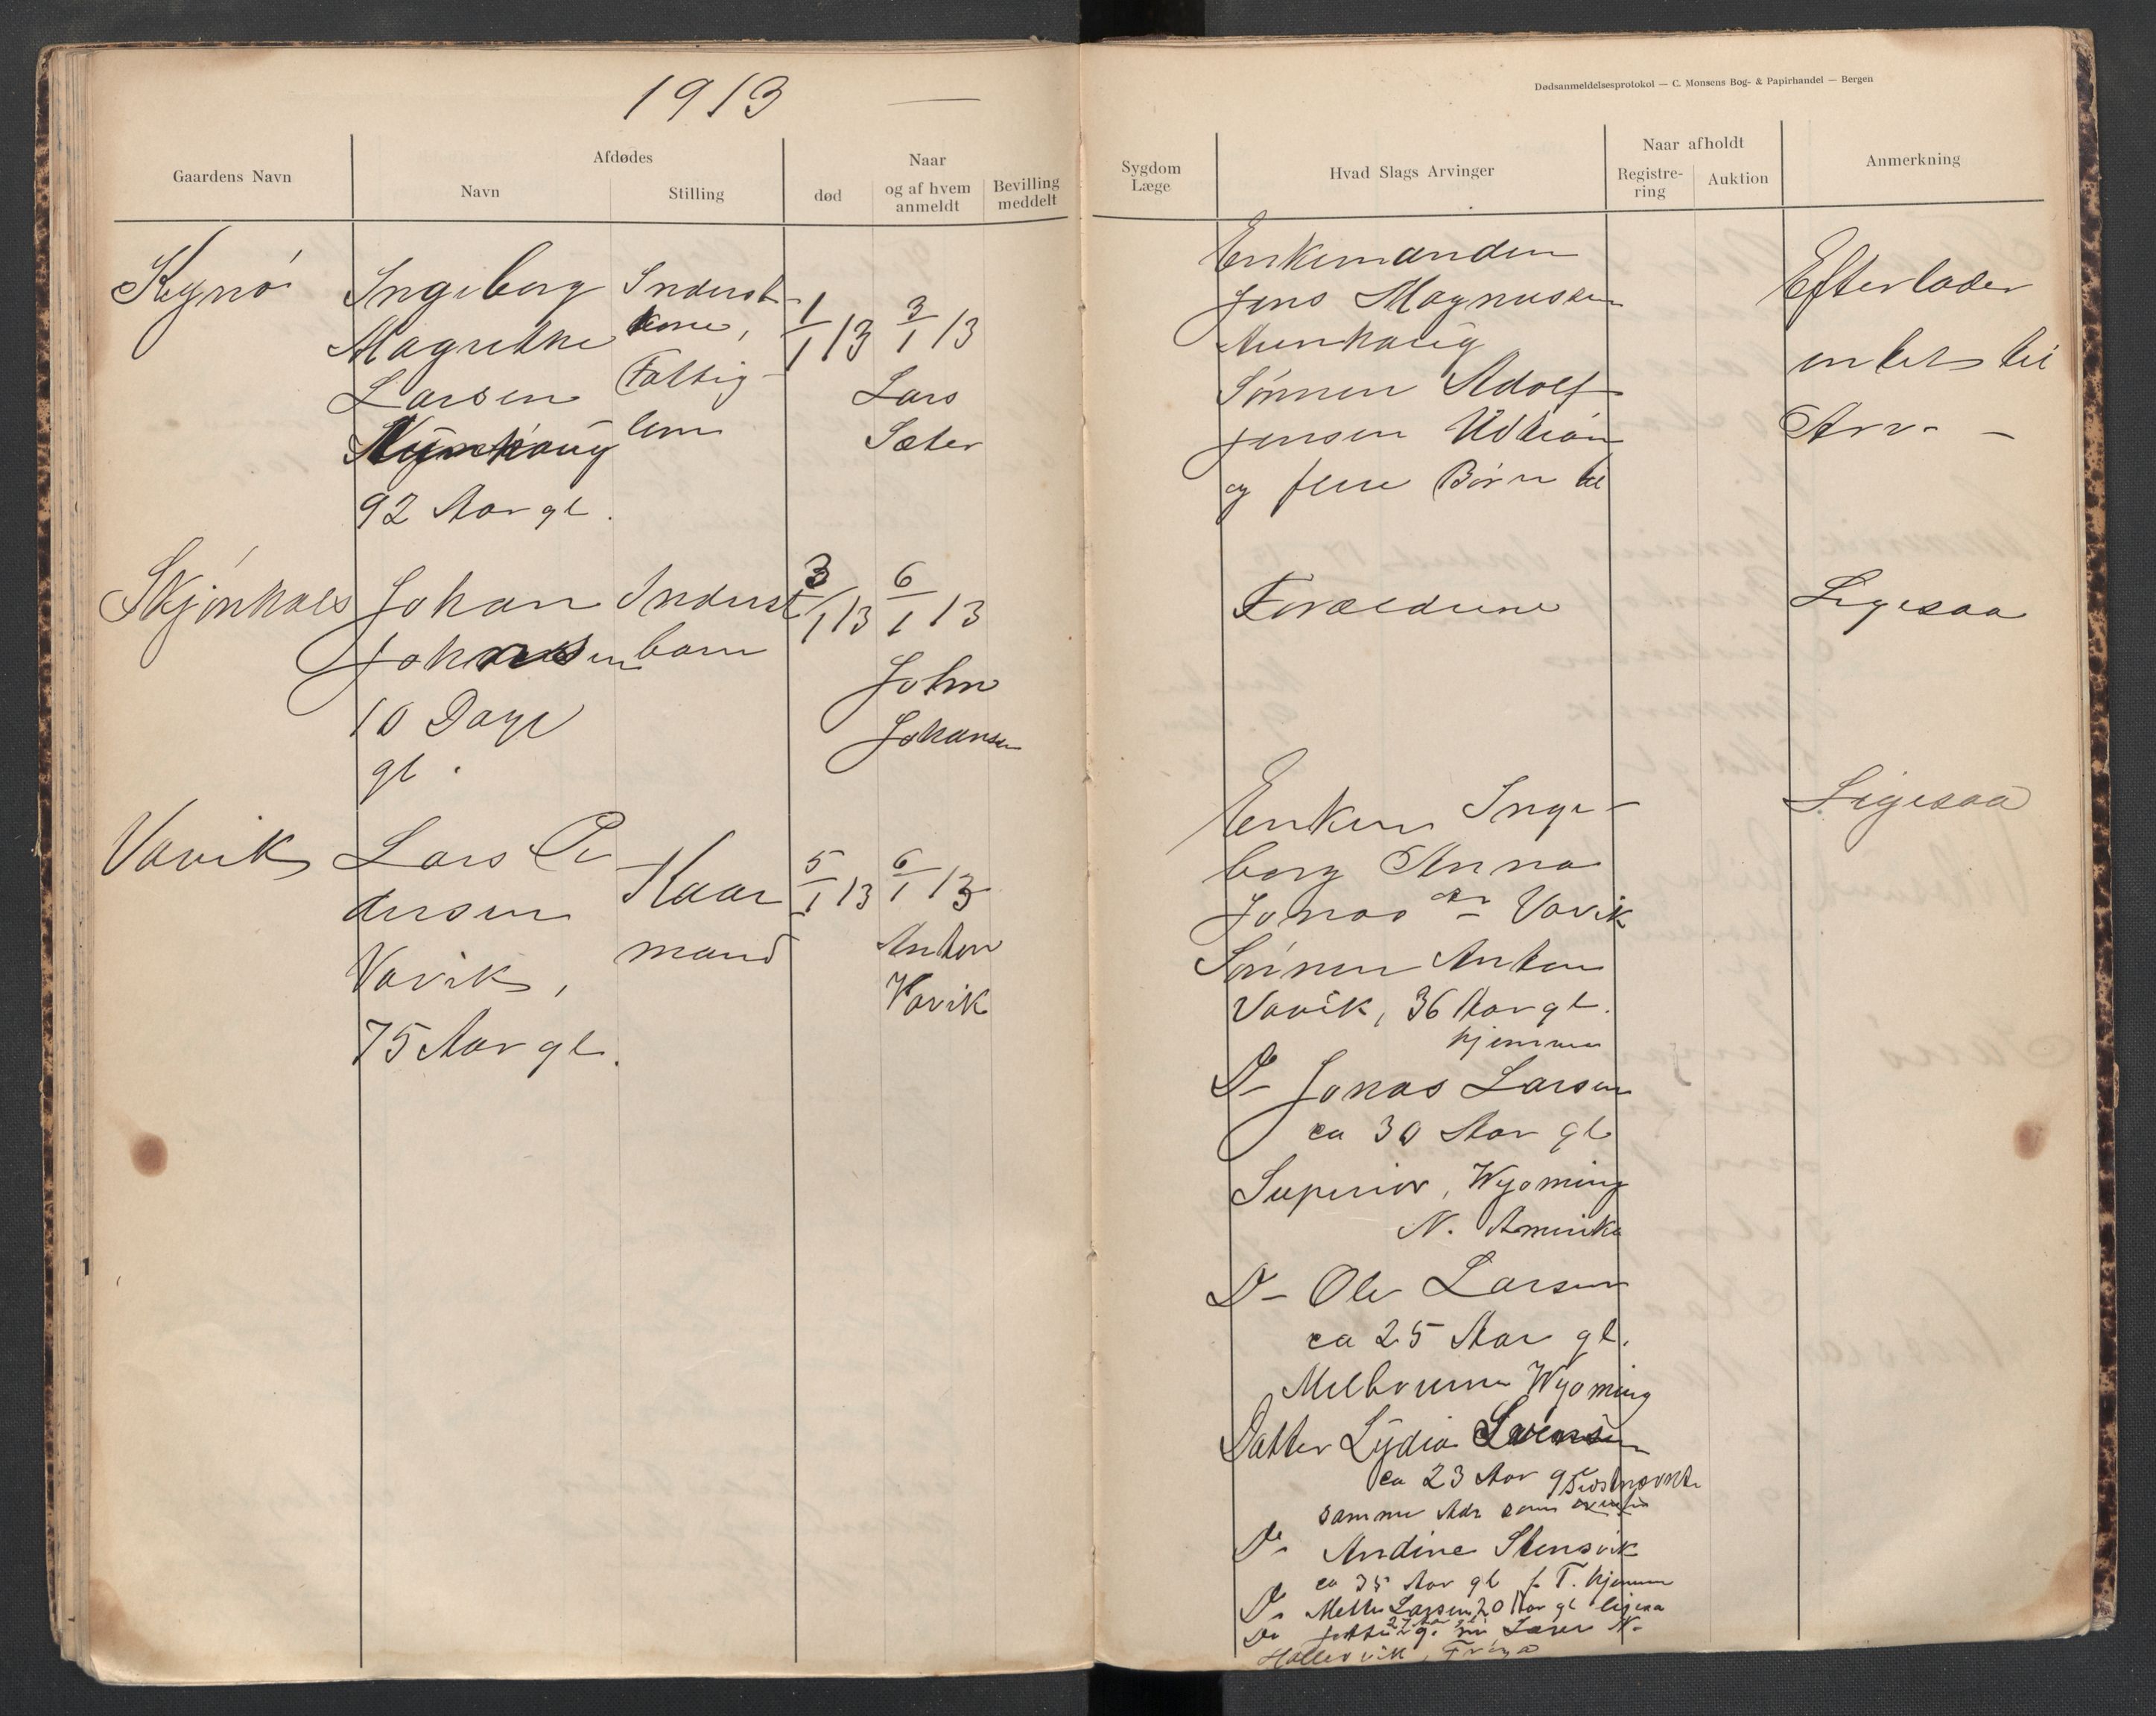 1913 —
Dødsanmeldelsesprotokol — C. Monsens Bog- & Papirhandel — Bergen
Gaardens Navn
Afdødes
Navn
Stilling
Naar
død
og af hvem anmeldt
Bevilling meddelt
Sygdom Læge
Hvad Slags Arvinger
Naar afholdt
Registre-
ring
Auktion
Anmerkning
Ingeborg
Magrethe
Larsen
92 Aar gl.
Inderst-
kone,
Fattig-
lem
1/1 13
3/1 13
Lars
Sæter
Enkemanden
Jens Magnussen
Munkhaug
Sønnen Adolf
Jensen
og flere Børn til
Efterlader
intet til
Arv. —
Skjønhals
Johan
Johnsen
10 Dage
gl.
Inderst
barn
3/1 13
6/1 13
John
Johansen
Forældrene
Ligesaa
Vavik
Lars Pe
dersen
Vavik,
75 Aar gl.
Kaar
mand
5/1 13
6/1 13
Anton
Vavik
Enken Inge-
borg Anna
Jonasdr Vavik
Sønnen Anton
Vavik, 36 Aar gl.
hjemme
Do Jonas Larsen
ca 30 Aar gl
Superior, Wyoming
N. Amerika
Do Ole Larsen
ca 25 Aar gl.
Melbourne Wyoming
Datter Lydia
ca 23 Aar gl
sidstnævnte
samme Adr som
Do Andine Stensvik
ca 35 Aar gl f. T. hjemme
Do Mette Larsen 20 Aar gl ligesaa
Do
27 Aar gl
Hallervik, Frøya
Ligesaa